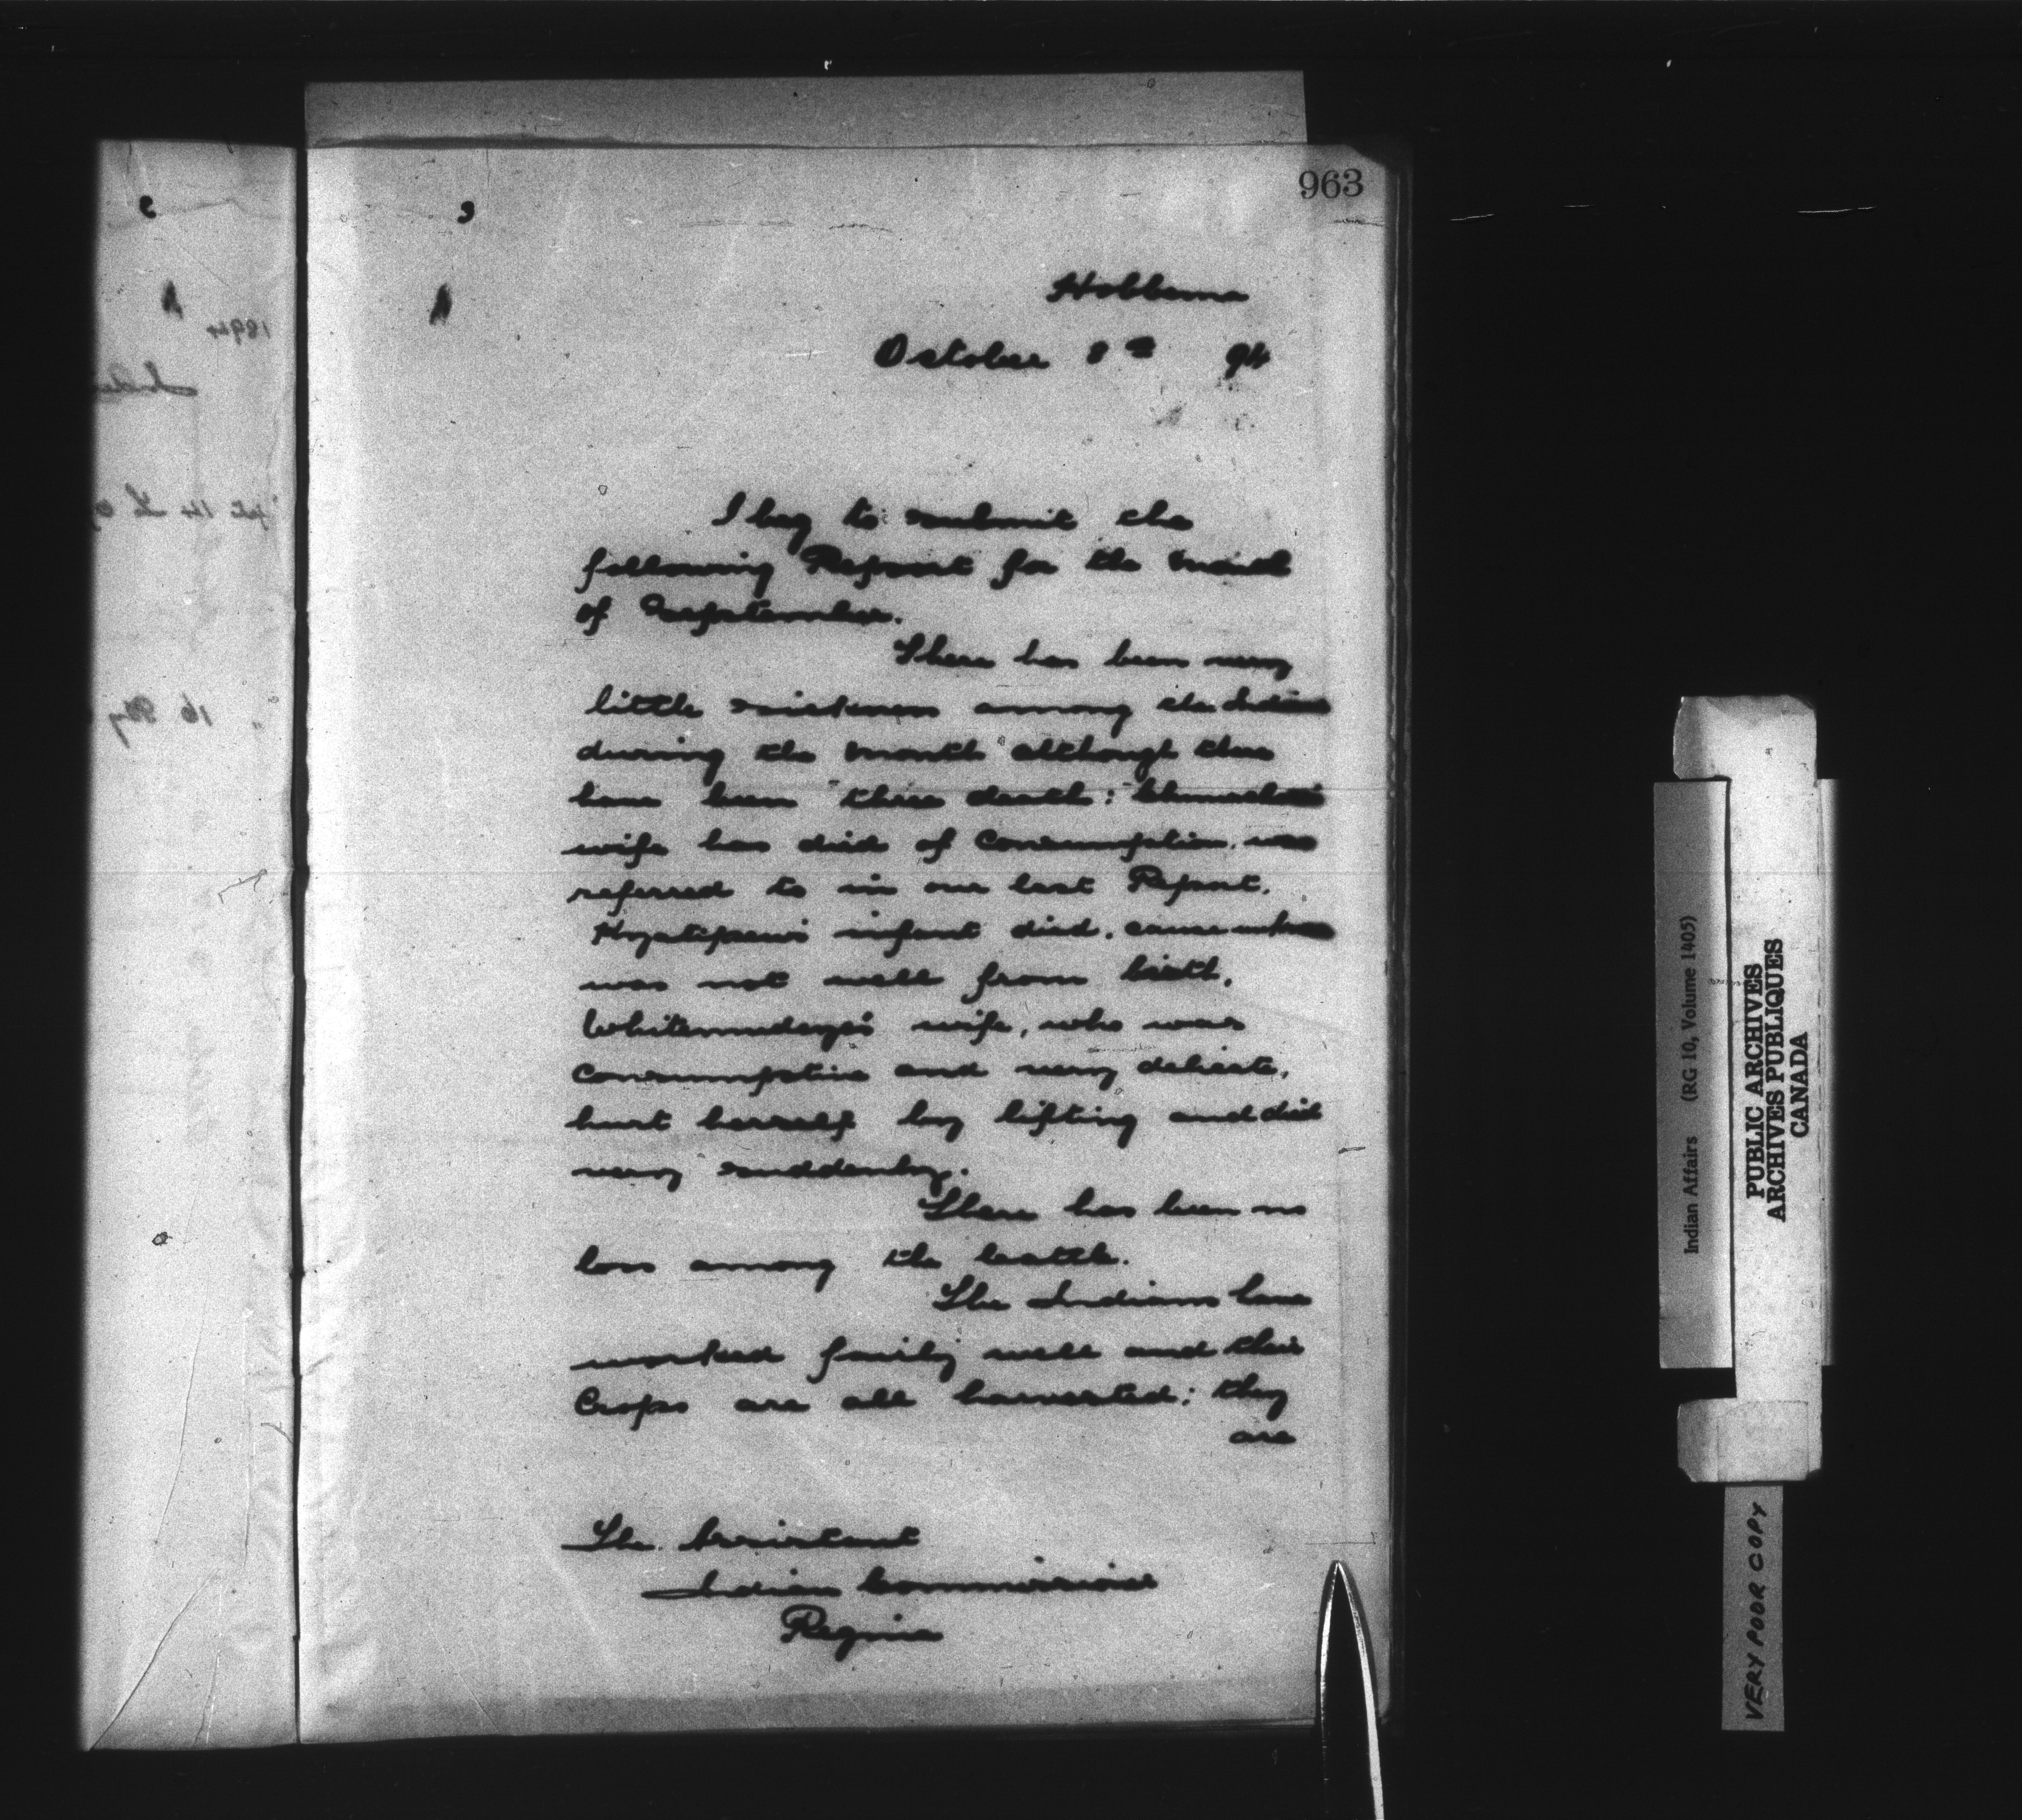 963
Hobbema
October 8th 94
I beg to submit the
following Report for the month
of September.
There has been very
little sickness among the Indians
during the month although there
have been three death:
wife has died of Consumption. was
referred to in our last Report.
infant died. cause
was not well from birth.
wife, who was
Consumptive and very delicate,
hurt herself by lifting and died
very suddenly.
There has been no
loss among the Cattle.
The Indians have
worked fairly well and their
Crops are all harvested; they
are
The Assistant
Indian Commissioner
Regina
1894
Indian Affairs (RG 10, Volume 1405)
PUBLIC ARCHIVES
ARCHIVES PUBLIQUES
CANADA
VERY POOR COPY